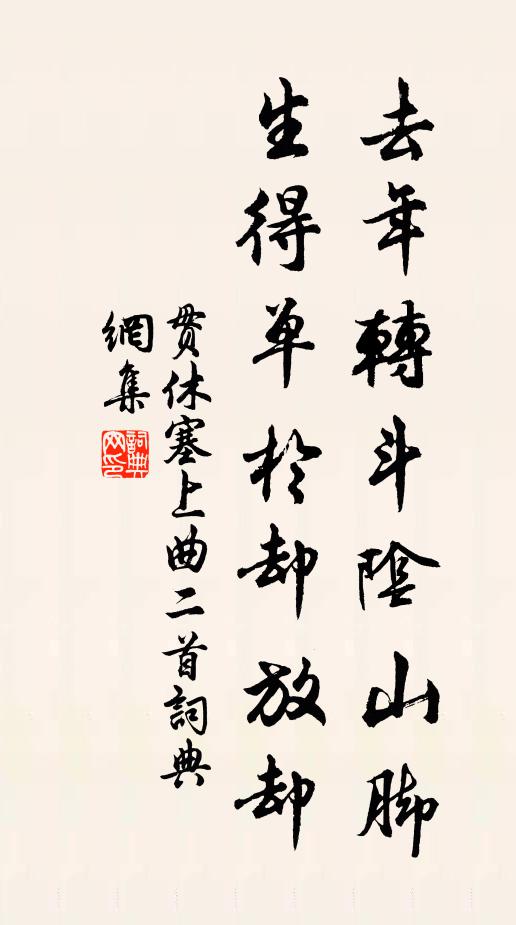 去年轉斗陰山脚
生得单於却放却
贯休塞上曲二首詞典
網集
詞典網印